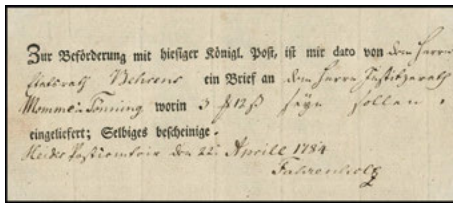 Zur Beförderung mit hiesiger Königl. Post, ist mir dato von dem Herrn
Etatsrath Behrens ein Brief an dem Herrn Justitzrath
Mommsen Tönning worin 3 ꝑ 12 ß seyn sollen.
eingeliefert; Selbiges bescheinige.
Heider Postcomtoir den 22. Aprile 1784
Fahrenholz